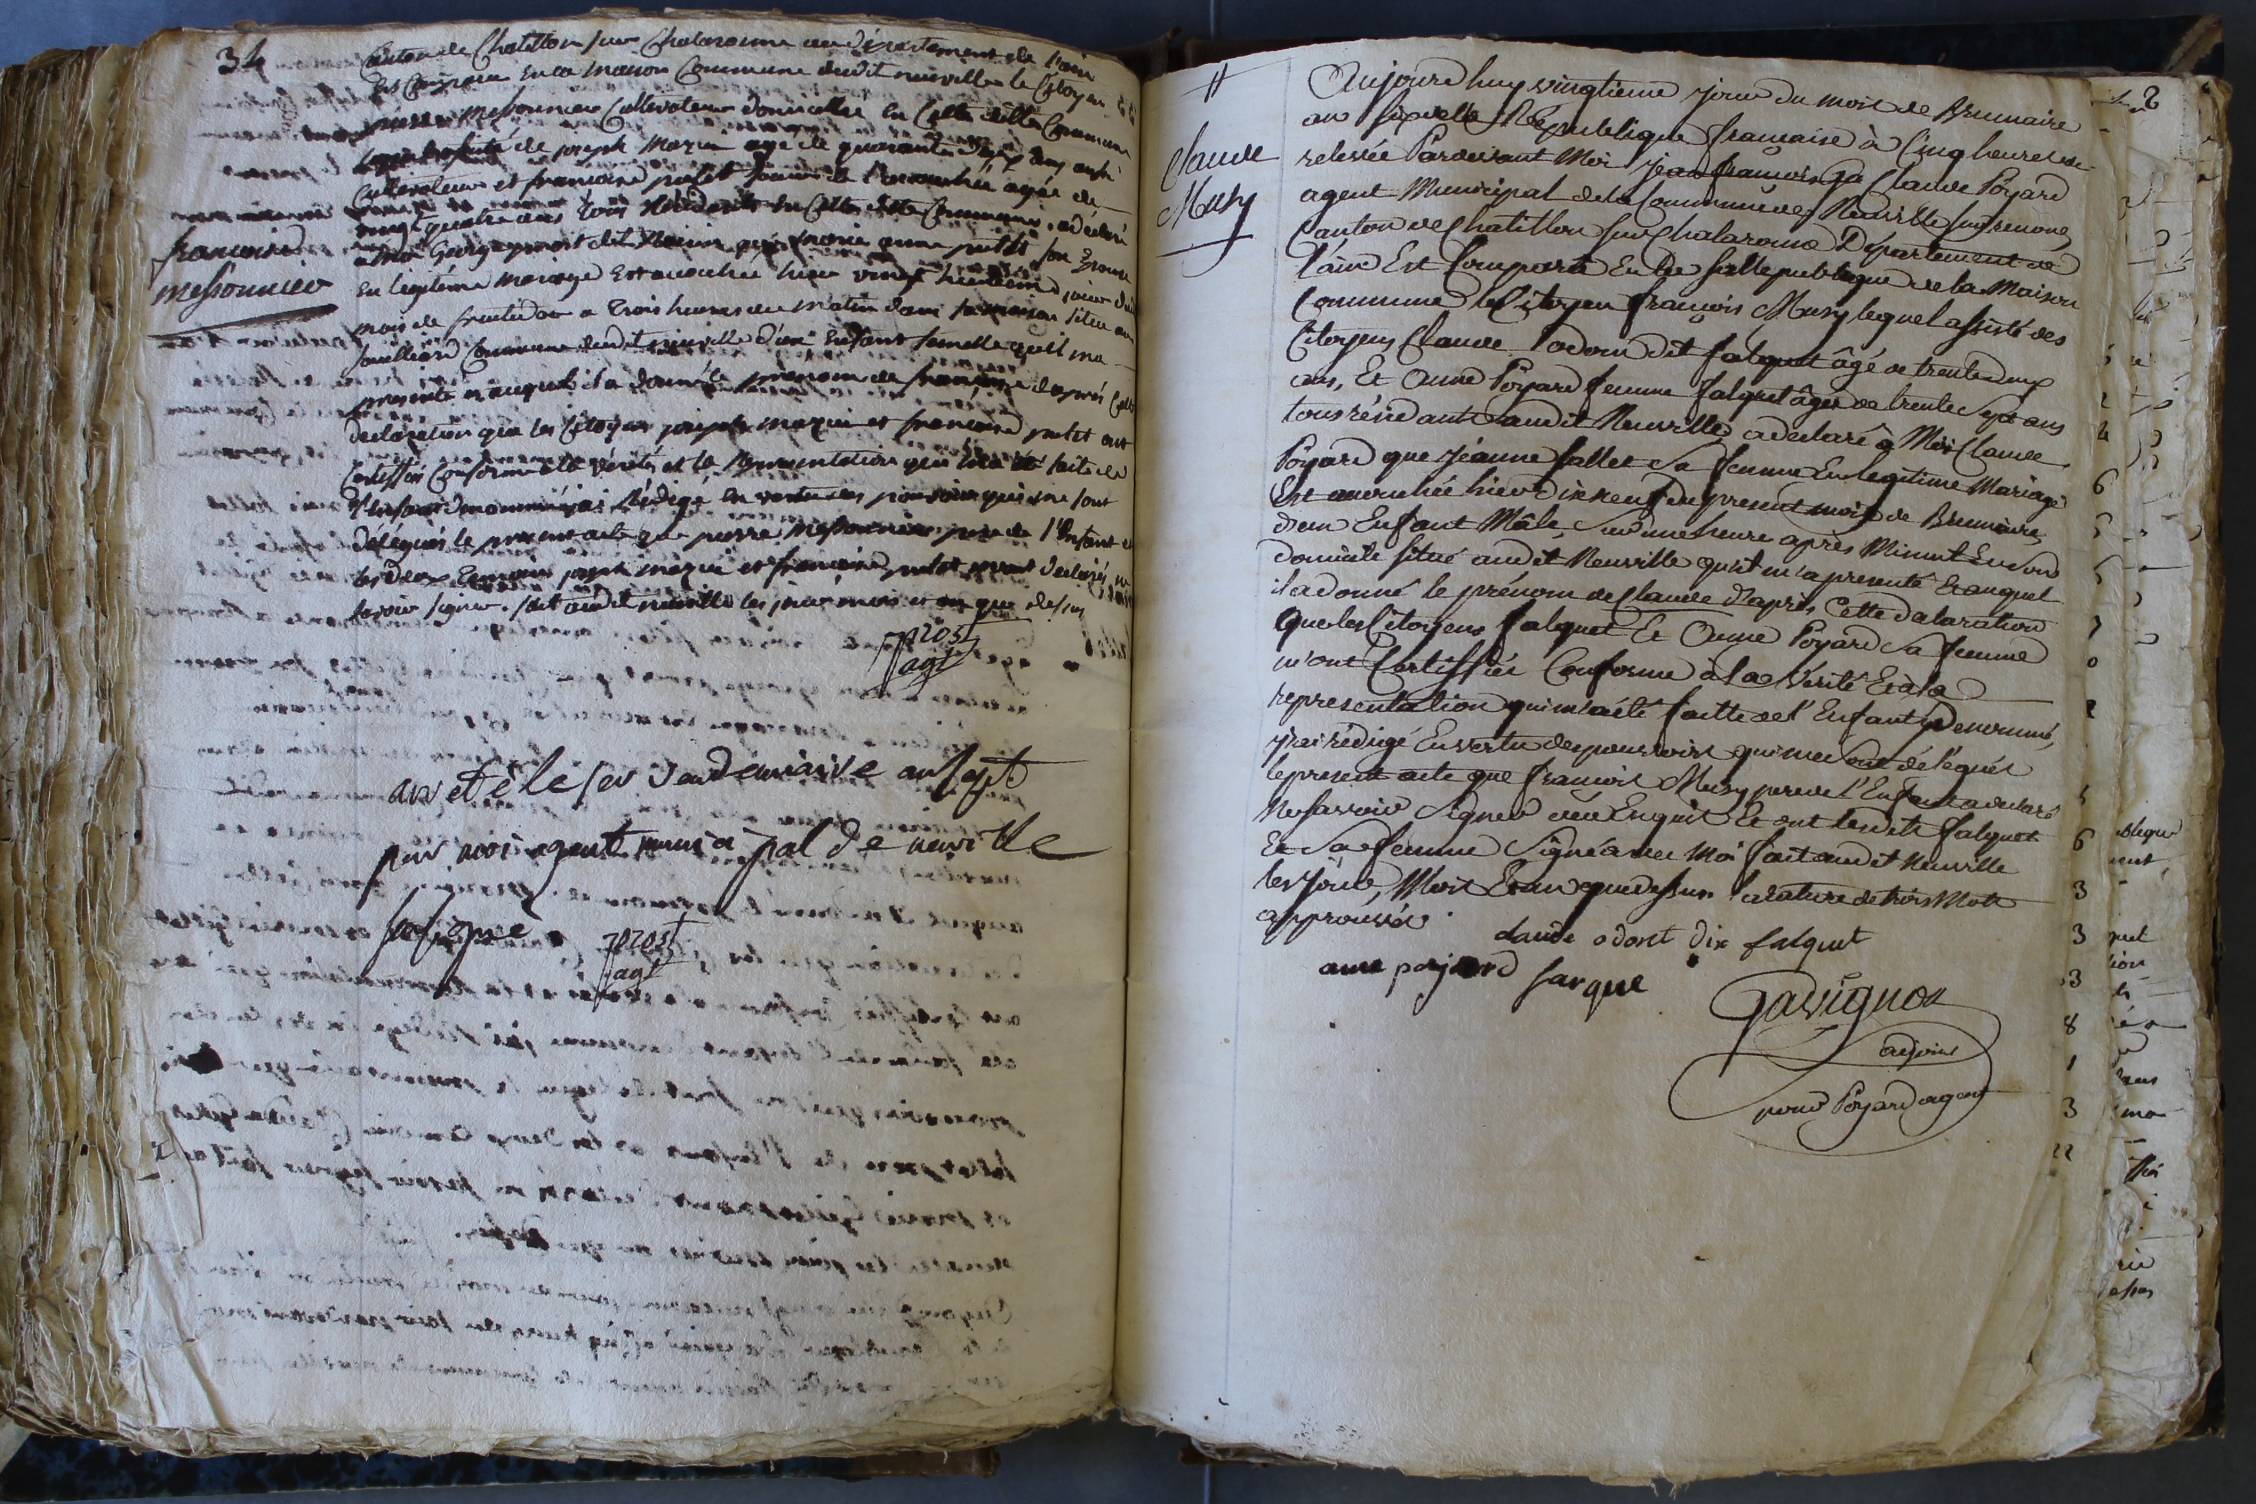 34
Canton de Chatillon sur Chalaronne au département de l'ain
Est Comparu En la maison Commune dudit neuville le Citoyen
pierre messonnier Cultivateur domicillié en Cette ditte Commune
de joseph Mazui agé de quarante deux ans aussi
Cultivateur et francoise putet de l'accouchée agée de
vingt quatre ans tous Résidents en Cette ditte Commune, a déclaré
a moi George prost dit que marie anne putet son Epouse
En légitime mariage Est accouchée hier vingt huitieme jour du
mois de fructidor a trois heures du matin dans sa maison située au
Commune dudit neuville d'un Enfant femelle qu'il m'a
presenté et auquel il a donné le prenom de françoise d'après Cette
declaration que les Citoyens joseph mazui et francoise putet ont
Certiffiés Conforme a la vérité et la Représentation qui m'a été faite de
l'Enfant denommé j'ai Rédigé En vertu des pouvoirs qui me sont
délégués le present acte que pierre messonnier pere de l'Enfant et
les deux temoins joseph mazui et francoise putet m'ont déclarés ne
savoir signer. fait audit neuville les jour mois et an que dessus
francoise
messonnier
prost
agt
areté le 1er vendemiaire an sept
par moi agent municipal de neuville
soussigné
prost
agt
Claude
Musy
Aujourd'huy vingtieme jour du mois de Brumaire
an six de la République française à Cinq heures de
relevée Pardevant Moi jean françois Ga Claude Poyard
agent Municipal de la Commune de Neuville sur renône,
Canton de Chatillon sur Chalaronne Département de
l'ain Est Comparu En la salle publique de la Maison
Commune le Citoyen françois Musy lequel assisté des
Citoyens Claude odorat dit falquet âgé de trente deux
ans, Et Anne Poyard femme falquet âgée de trente sept ans
tous résidants audit Neuville, a déclaré à Moi Claude
Poyard que Jeanne fallet sa femme En légitime Mariage
Est accouchée hier dix neuf du present mois de Brumaire,
d'un Enfant Mâle, sur une heure après Minuit En son
domicile situé audit Neuville qu'il m'a présenté Et auquel
il a donné le prénom de Claude d'après Cette déclaration
que les Citoyens falquet Et Anne Poyard sa femme
m'ont Certiffiés Conforme à la Vérité Et à la
representation qui m'a été faitte de l'Enfant denommé,
j'ai rédigé En vertu des pouvoirs qui me sont délégués
le present acte que françois Musy pere de l'Enfant a déclaré
Ne savoir Signer de ce Enquis Et ont lesdits falquet
Et sa femme Signé avec Moi fait audit Neuville
les Jour, Mois Et an que dessus la rature de trois Mots
approuvée
claude odorat dix falquet
anne poyard farque
Gavignon
adjoint
pour Poyard agent